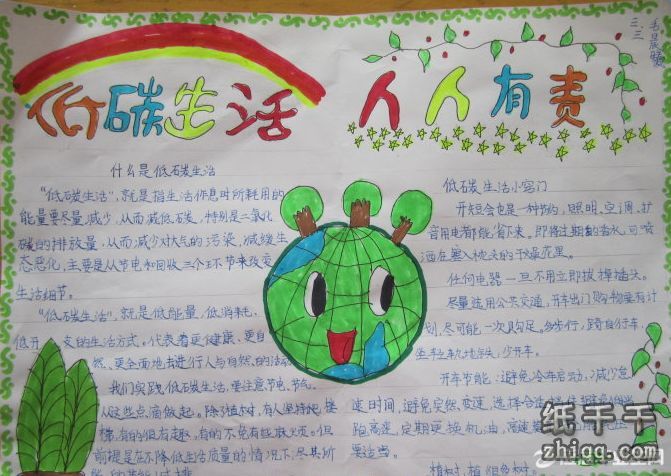 低碳生活
人人有责
三.三
什么是低碳生活
“低碳生活”,就是指生活作息时所耗用的
能量要尽量减少,从而减低碳,特别是二氧化
碳的排放量,从而减少对大气的污染,减缓生
态恶化,主要是从节电和回收三个环节来改变
生活细节。
“低碳生活”,就是低能量、低消耗、
低开
支的生活方式。代表着更健康、更自
然、更全面地去进行人与自然的活动
我们实践低碳生活,要注意节电、节气、
从这些点滴做起。除了植树,有人坚持爬楼
梯,有的很有趣,有的不免有些麻烦。但
前提是在不降低生活质量的情况下,尽其所
低碳生活小窍门
开短会也是一种节约,照明、空调、扩
音用电都能省下来,即将过期的香水,可喷
洒在塞入枕皮的干燥花里。
任何电器一旦不用立即拔掉插头。
尽量选用公共交通,开车出门购物要有计
划,尽可能一次购足。多步行,骑自行车,
坐轻轨地铁,少开车。
开车节能:避免冷车启动,减少怠
速时间,避免突然变速,选择合适
跑高速,定期更换机油,高速
要适当。
植树,植
纸千千
zhiqq.com